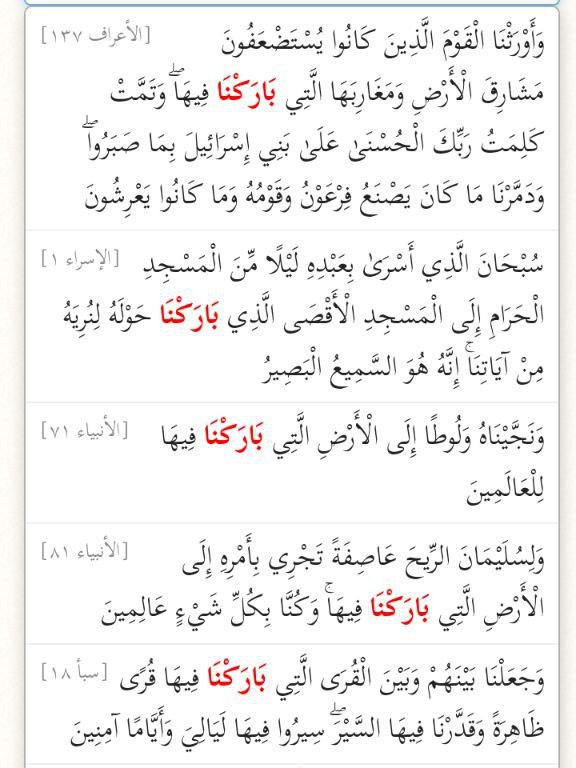 وَأَوْرَثْنَا الْقَوْمَ الَّذِينَ كَانُوا يُسْتَضْعَفُونَ [الأعراف ١٣٧]
مَشَارِقَ الْأَرْضِ وَمَغَارِبَهَا الَّتِي بَارَكْنَا فِيهَا ۖ وَتَمَّتْ
كَلِمَتُ رَبِّكَ الْحُسْنَىٰ عَلَىٰ بَنِي إِسْرَائِيلَ بِمَا صَبَرُوا ۖ
وَدَمَّرْنَا مَا كَانَ يَصْنَعُ فِرْعَوْنُ وَقَوْمُهُ وَمَا كَانُوا يَعْرِشُونَ
سُبْحَانَ الَّذِي أَسْرَىٰ بِعَبْدِهِ لَيْلًا مِّنَ الْمَسْجِدِ [الإسراء ١]
الْحَرَامِ إِلَى الْمَسْجِدِ الْأَقْصَى الَّذِي بَارَكْنَا حَوْلَهُ لِنُرِيَهُ
مِنْ آيَاتِنَا ۚ إِنَّهُ هُوَ السَّمِيعُ الْبَصِيرُ
وَنَجَّيْنَاهُ وَلُوطًا إِلَى الْأَرْضِ الَّتِي بَارَكْنَا فِيهَا [الأنبياء ٧١]
لِلْعَالَمِينَ
وَلِسُلَيْمَانَ الرِّيحَ عَاصِفَةً تَجْرِي بِأَمْرِهِ إِلَى [الأنبياء ٨١]
الْأَرْضِ الَّتِي بَارَكْنَا فِيهَا ۚ وَكُنَّا بِكُلِّ شَيْءٍ عَالِمِينَ
وَجَعَلْنَا بَيْنَهُمْ وَبَيْنَ الْقُرَى الَّتِي بَارَكْنَا فِيهَا قُرًى [سبأ ١٨]
ظَاهِرَةً وَقَدَّرْنَا فِيهَا السَّيْرَ ۖ سِيرُوا فِيهَا لَيَالِيَ وَأَيَّامًا آمِنِينَ